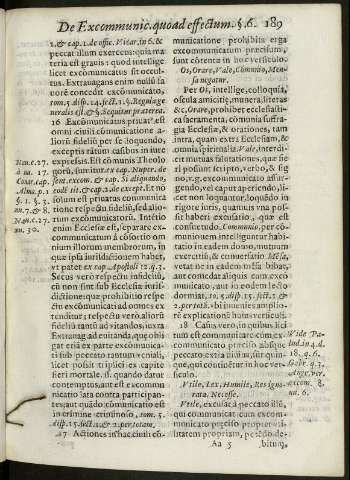 De Excommunic. quoad effectum. §. 6. 189
1. & cap. 1. de offic. Vicar. in 6. &
peccat illum exercens: quia ma
teria est grauis: quod intellige
licet excommunicatus sit occul-
tus. Extrauagans enim nulli fa
uore concedit excommunicato,
tom. 3. disp. 14. sect. 1. §. Regulage
neralis est, & §. Sequitur praterea.
16 Excommunicatus priuat est
omni ciuili communicatione a-
liorū fidelū per se loquendo,
exceptis rarum casibus in iure
expressis. Est cōmunis Theolo
gorū, sumitur ex cap. Nuper. de
sent. excom. & cap. Si aliquando,
codē tit. & cap. 2. de except. Et nō
solum est priuatus communica
tione respectu fideliū, sed alio-
rum excōmunicatorū. Intētio
enim Ecclesiæ est, separare ex-
communicatum à consortio om
nium illorum membrorum, in
quæ ipsa iurisdictionem habet,
vt patet ex cap. Apostoli 12. q. 3.
Secus verò respectu infideliū,
cū non sint sub Ecclesiæ iuris-
dictione: quæ prohibitio respe
ctu excōmunicati ad omnes ex
tenditur; respectu verò aliorū
fideliū tantū ad vitandos, iuxta
Extrauag. ad euitanda, quæ obli
gat etiā ex parte excommunica-
ti sub peccato tantum veniali,
licet possit triplici ex capite
fieri mortale. si. quando datur
contemptus, aut est excommuni
catio lata contra participan-
tes, aut quādo cōmunicatio est
in crimine criminoso, tom. 5.
disp. 15. sect. 1. & 2. per totam.
17 Actiones in hac ciuili cō-
Nau. c. 27.
nu. 17.
Nau. c. 27.
nu. 30.
municatione prohibita erga
excommunicatum præcisum,
sunt cōtenta in hoc versiculo.
Os, Orare, Vale, Cōmunio, Men-
sa negatur.
Per Os, intellige, colloquia,
oscula amicitiæ, munera, literas
&c. Orare, prohibet ecclesiasti-
ca sacramenta, cōmunia suffra-
gia Ecclesiæ, & orationes, tam
intra, quam extra Ecclesiam, &
omnia spiritalia. Vale, interdi-
cit mutuas salutationes, quæ fie
ri possunt scripto, verbo, & sig
no, v. g. excommunicato assur-
gendo, vel caput aperiendo, li-
cet non loquantur, loquēdo in
rigore iuris, quamuis vna pos-
sit haberi excusatio, quæ est
consuetudo. Communio, per cō-
munionem intelliguntur habi-
tatio in eadem domo, mutuum
exercitiū, & conuersatio. Mēsa,
vetat ne in eadem mēsa bibat,
aut comedat aliquis cum excō
municato, aut in eodem lecto
dormiat, 10. 5. disp. 15. sect. 1. &
2. per totā. vbi inuenies amplio-
rē explicationē huius versiculi.
18 Casus verò, in quibus lici
tum est communicare cum ex-
communicato præciso absque
peccato extra diuina, sunt quin-
que, qui continentur in hoc ver-
siculo.
Vtile, Lex, Humile, Res igno
rata, Necesse.
Vtile, excusat à peccato illū,
qui communicat cum excom-
municato præciso propter vti-
litatem propriam, petēdo de-
Vide Pa-
lud. in 4. d.
18. q. 6.
excom. 8.
nu. 6.
Aa 5
bitum,